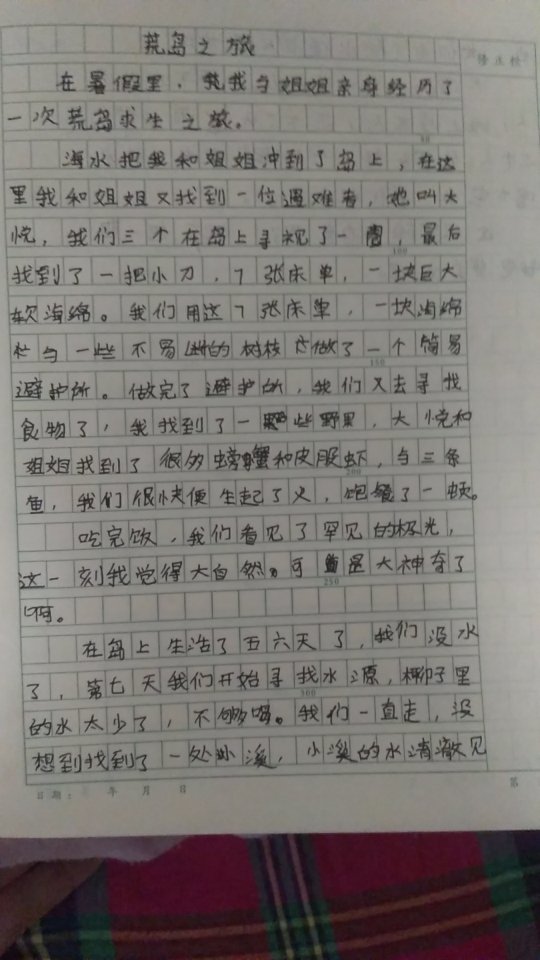 荒岛之旅
修正栏
在暑假里，我与姐姐亲身经历了
一次荒岛求生之旅。
海水把我和姐姐冲到了岛上，在这
里我和姐姐又找到一位遇难者，她叫大
悦，我们三个在岛上寻视了一圈，最后
找到了一把小刀，7张床单，一块巨大
软海绵。我们用这7张床单，一块海绵
与一些不易断的树枝做了一个简易
避护所。做完了避护所，我们又去寻找
食物了，我找到了一些野果，大悦和
姐姐找到了很多螃蟹和皮皮虾，与三条
鱼，我们很快便生起了火，饱餐了一顿。
吃完饭，我们看见了罕见的极光，
这一刻我觉得大自然可真是太神奇了
啊。
在岛上生活了五六天了，我们没水
了，第七天我们开始寻找水源，椰子里
的水太少了，不够喝。我们一直走，没
想到找到了一处小溪，小溪的水清澈见
日期： 年 月 日 第